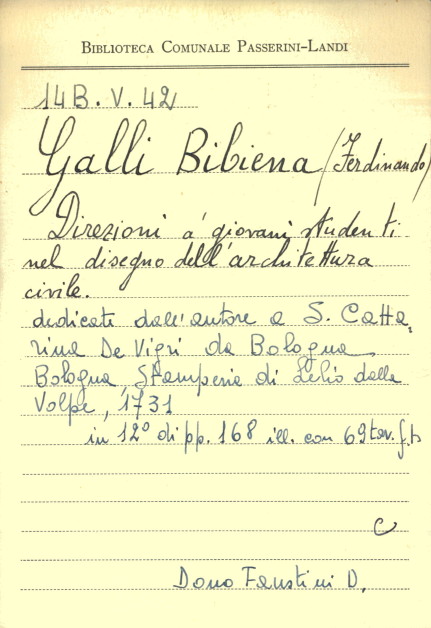 BIBLIOTECA COMUNALE PASSERINI-LANDI
14B. V. 42
Galli Bibiena (Ferdinando)
Direzioni a' giovani studenti
nel disegno dell'architettura
civile.
dedicate dall'autore a S. Catta,
rina De Vigri da Bologna
Bologna, Stamperia di Lelio dalla
Volpe, 1731
in 12° di pp. 168 ill. con 69 tav. f.t.
C
Dono Faustini D.